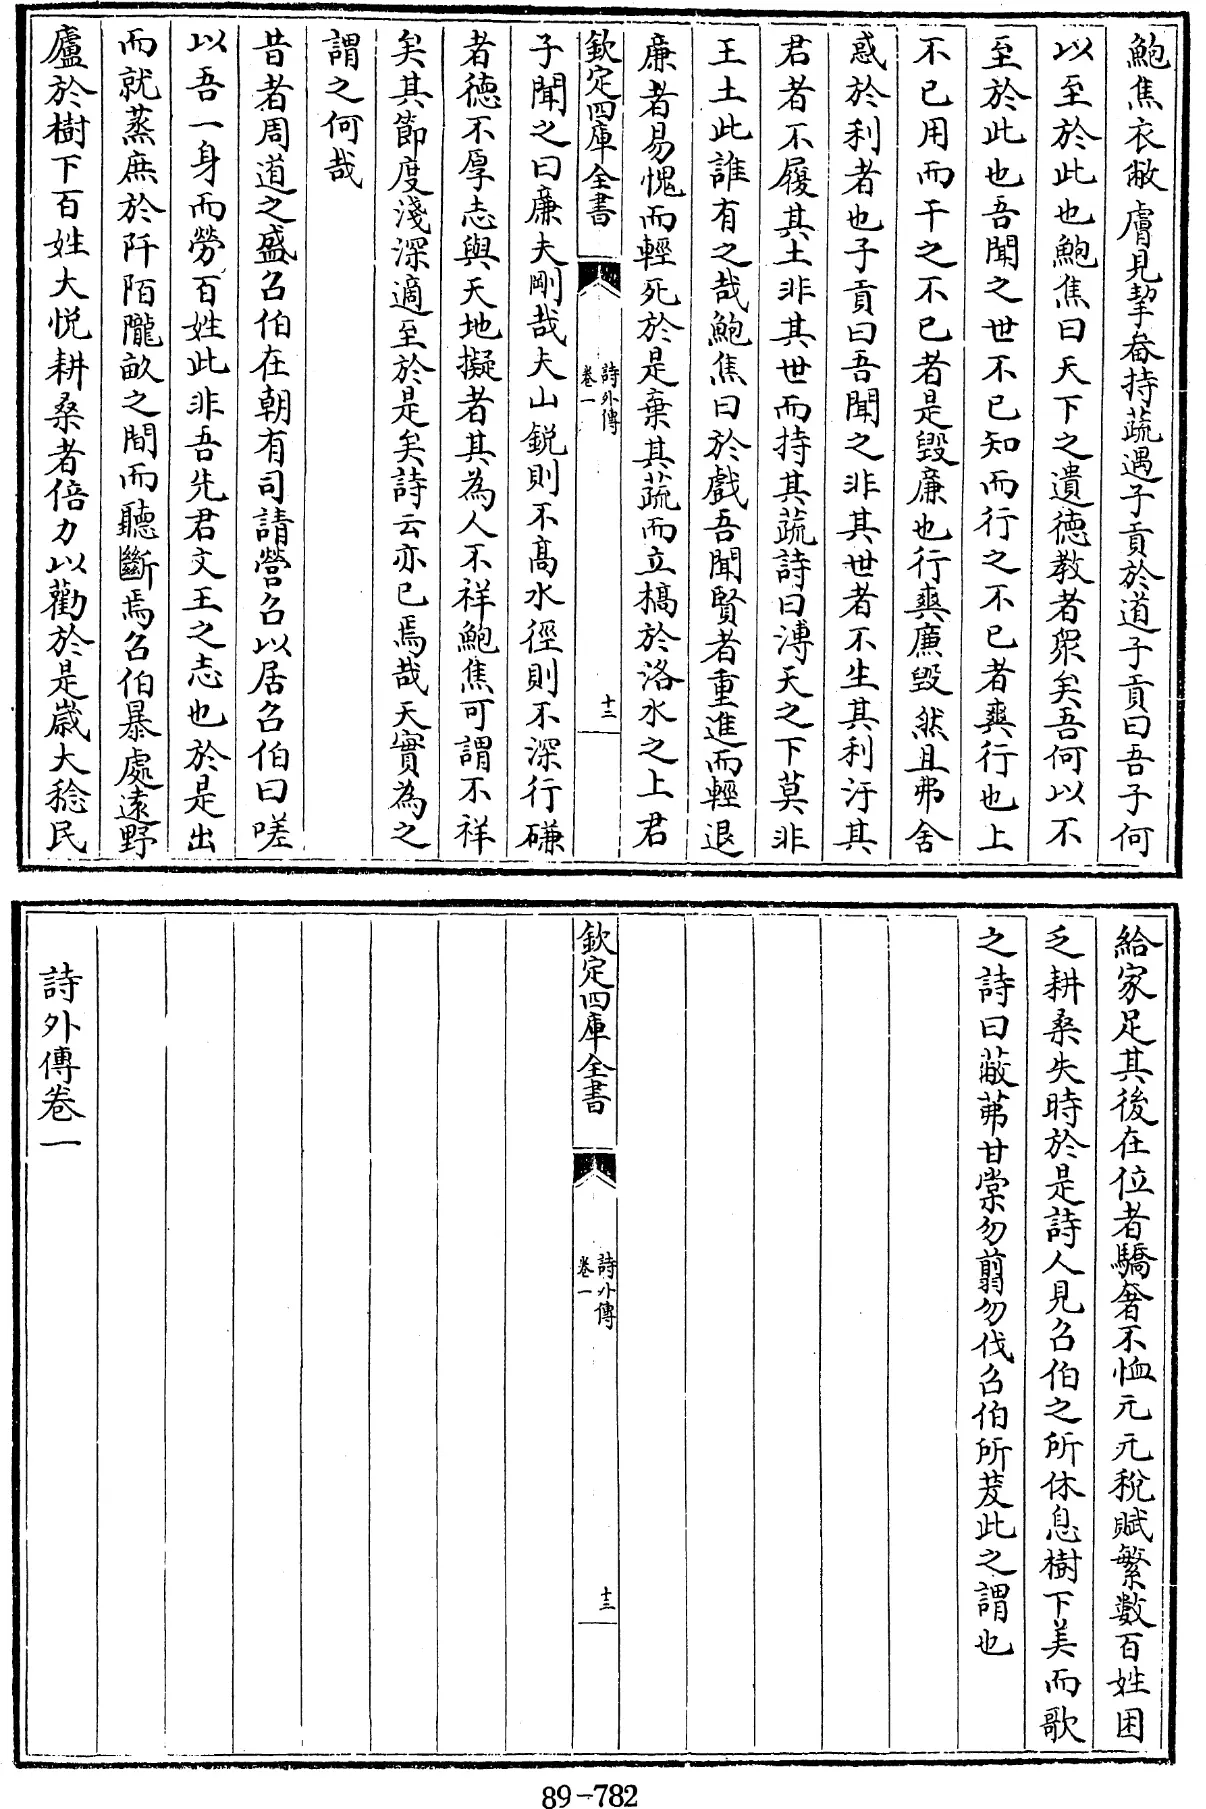 鮑焦衣敝膚見挈畚持蔬遇子貢於道子貢曰吾子何
以至於此也鮑焦曰天下之遺德教者衆矣吾何以不
至於此也吾聞之世不已知而行之不已者爽行也上
不已用而干之不已者是毀廉也行爽廉毀然且弗舍
惑於利者也子貢曰吾聞之非其世者不生其利汙其
君者不履其土非其世而持其蔬詩曰溥天之下莫非
王土此誰有之哉鮑焦曰於戲吾聞賢者重進而輕退
廉者易愧而輕死於是棄其蔬而立槁於洛水之上君
欽定四庫全書
詩外傳
卷一
十二
子聞之曰廉夫剛哉夫山銳則不高水徑則不深行磏
者德不厚志與天地擬者其為人不祥鮑焦可謂不祥
矣其節度淺深適至於是矣詩云亦已焉哉天實為之
謂之何哉
昔者周道之盛召伯在朝有司請營召以居召伯曰嗟
以吾一身而勞百姓此非吾先君文王之志也於是出
而就蒸庶於阡陌隴畝之間而聽斷焉召伯暴處遠野
廬於樹下百姓大悅耕桑者倍力以勸於是歲大稔民
給家足其後在位者驕奢不恤元元稅賦繁數百姓困
乏耕桑失時於是詩人見召伯之所休息樹下美而歌
之詩曰蔽芾甘棠勿翦勿伐召伯所茇此之謂也
欽定四庫全書
詩外傳
卷一
十三
詩外傳卷一
89-782